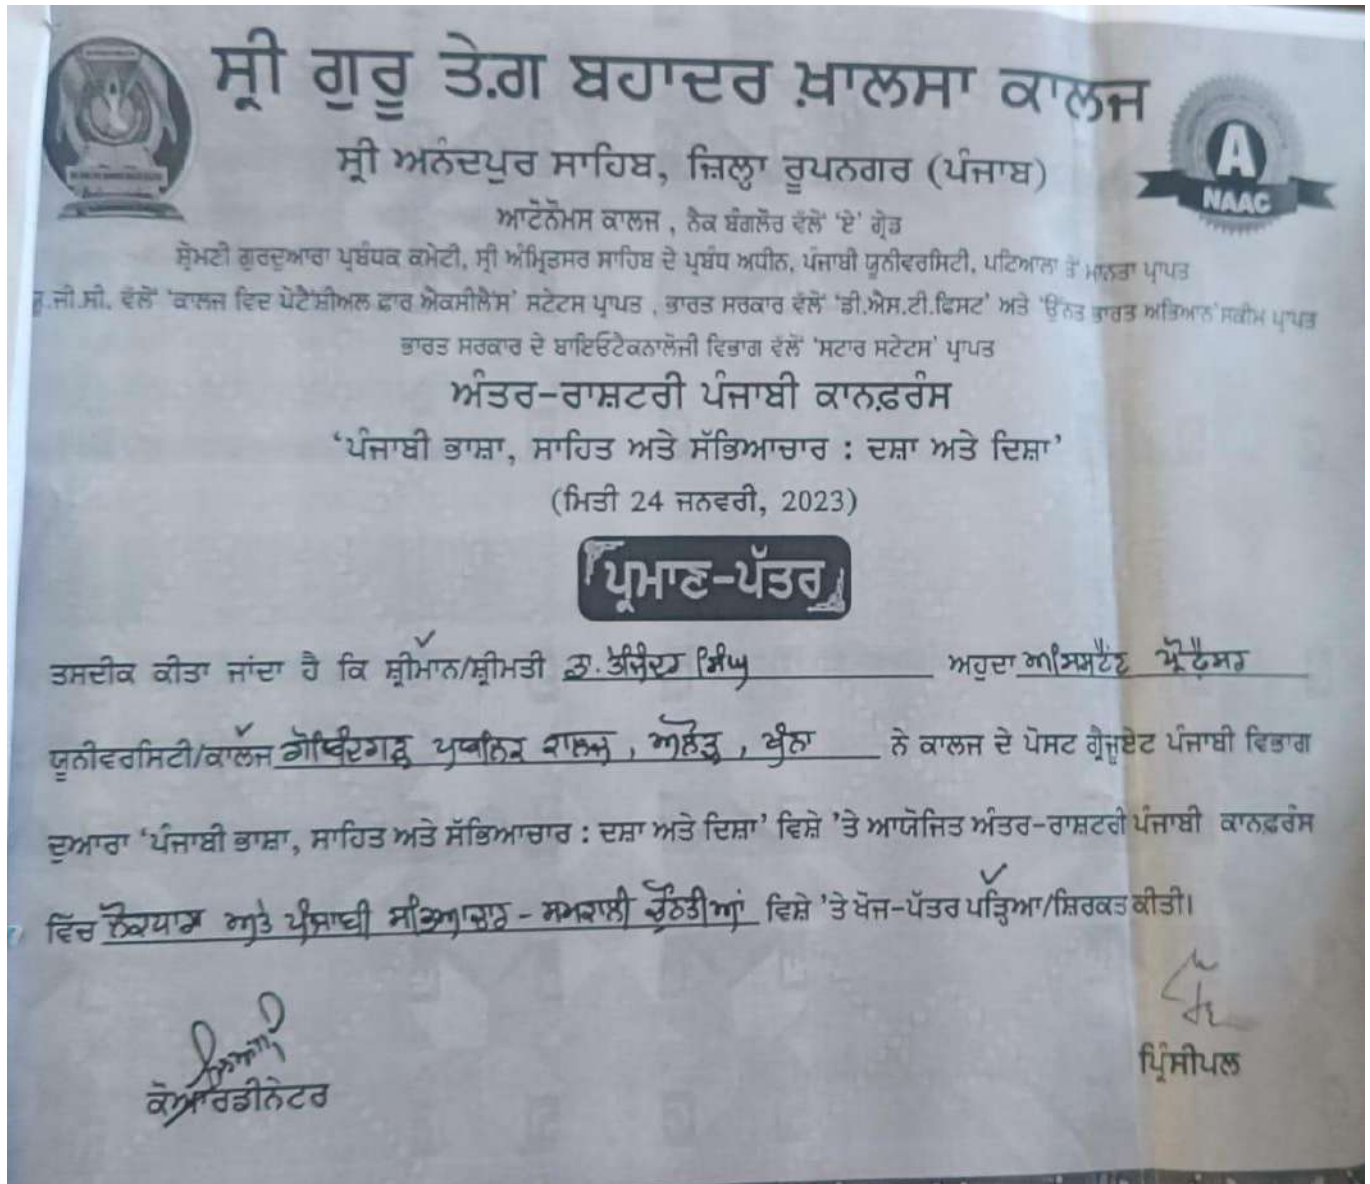 ਸ੍ਰੀ ਗੁਰੂ ਤੇਗ਼ ਬਹਾਦਰ ਖ਼ਾਲਸਾ ਕਾਲਜ
ਸ੍ਰੀ ਅਨੰਦਪੁਰ ਸਾਹਿਬ, ਜ਼ਿਲ੍ਹਾ ਰੂਪਨਗਰ (ਪੰਜਾਬ)
A
NAAC
ਆਟੋਨੋਮਸ ਕਾਲਜ, ਨੈਕ ਬੰਗਲੌਰ ਵੱਲੋਂ 'ਏ' ਗ੍ਰੇਡ
ਸ਼੍ਰੋਮਣੀ ਗੁਰਦੁਆਰਾ ਪ੍ਰਬੰਧਕ ਕਮੇਟੀ, ਸ੍ਰੀ ਅੰਮ੍ਰਿਤਸਰ ਸਾਹਿਬ ਦੇ ਪ੍ਰਬੰਧ ਅਧੀਨ, ਪੰਜਾਬੀ ਯੂਨੀਵਰਸਿਟੀ, ਪਟਿਆਲਾ ਤੋਂ ਮਾਨਤਾ ਪ੍ਰਾਪਤ
ਯੂ.ਜੀ.ਸੀ. ਵੱਲੋਂ 'ਕਾਲਜ ਵਿਦ ਪੋਟੈਂਸ਼ੀਅਲ ਫ਼ਾਰ ਐਕਸੀਲੈਂਸ' ਸਟੇਟਸ ਪ੍ਰਾਪਤ, ਭਾਰਤ ਸਰਕਾਰ ਵੱਲੋਂ 'ਡੀ.ਐਸ.ਟੀ.ਫਿਸਟ' ਅਤੇ 'ਉੱਨਤ ਭਾਰਤ ਅਭਿਆਨ' ਸਕੀਮ ਪ੍ਰਾਪਤ
ਭਾਰਤ ਸਰਕਾਰ ਦੇ ਬਾਇਓਟੈਕਨਾਲੋਜੀ ਵਿਭਾਗ ਵੱਲੋਂ 'ਸਟਾਰ ਸਟੇਟਸ' ਪ੍ਰਾਪਤ
ਅੰਤਰ-ਰਾਸ਼ਟਰੀ ਪੰਜਾਬੀ ਕਾਨਫ਼ਰੰਸ
'ਪੰਜਾਬੀ ਭਾਸ਼ਾ, ਸਾਹਿਤ ਅਤੇ ਸੱਭਿਆਚਾਰ : ਦਸ਼ਾ ਅਤੇ ਦਿਸ਼ਾ'
(ਮਿਤੀ 24 ਜਨਵਰੀ, 2023)
ਪ੍ਰਮਾਣ-ਪੱਤਰ
ਤਸਦੀਕ ਕੀਤਾ ਜਾਂਦਾ ਹੈ ਕਿ ਸ਼੍ਰੀਮਾਨ/ਸ਼੍ਰੀਮਤੀ ਡਾ. ਤੇਜਿੰਦਰ ਸਿੰਘ ਅਹੁਦਾ ਅਸਿਸਟੈਂਟ ਪ੍ਰੋਫ਼ੈਸਰ
ਯੂਨੀਵਰਸਿਟੀ/ਕਾਲਜ ਗੋਬਿੰਦਗੜ੍ਹ ਪਬਲਿਕ ਕਾਲਜ, ਅਲੋੜ, ਖੰਨਾ ਨੇ ਕਾਲਜ ਦੇ ਪੋਸਟ ਗ੍ਰੈਜੂਏਟ ਪੰਜਾਬੀ ਵਿਭਾਗ
ਦੁਆਰਾ 'ਪੰਜਾਬੀ ਭਾਸ਼ਾ, ਸਾਹਿਤ ਅਤੇ ਸੱਭਿਆਚਾਰ : ਦਸ਼ਾ ਅਤੇ ਦਿਸ਼ਾ' ਵਿਸ਼ੇ 'ਤੇ ਆਯੋਜਿਤ ਅੰਤਰ-ਰਾਸ਼ਟਰੀ ਪੰਜਾਬੀ ਕਾਨਫ਼ਰੰਸ
ਵਿੱਚ ਲੋਕਧਾਰਾ ਅਤੇ ਪੰਜਾਬੀ ਸੱਭਿਆਚਾਰ - ਸਮਕਾਲੀ ਚੁਣੌਤੀਆਂ ਵਿਸ਼ੇ 'ਤੇ ਖੋਜ-ਪੱਤਰ ਪੜ੍ਹਿਆ/ਸ਼ਿਰਕਤ ਕੀਤੀ।
ਕੋਆਰਡੀਨੇਟਰ
ਪ੍ਰਿੰਸੀਪਲ